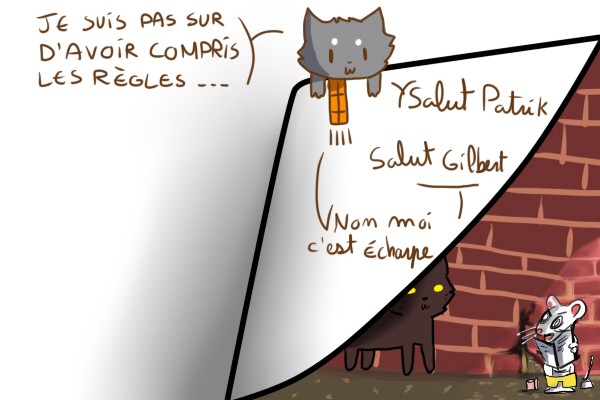 JE SUIS PAS SUR
D'AVOIR COMPRIS
LES RÈGLES ...
YSalut Patrik
Salut Gilbert
Non moi
c'est écharpe